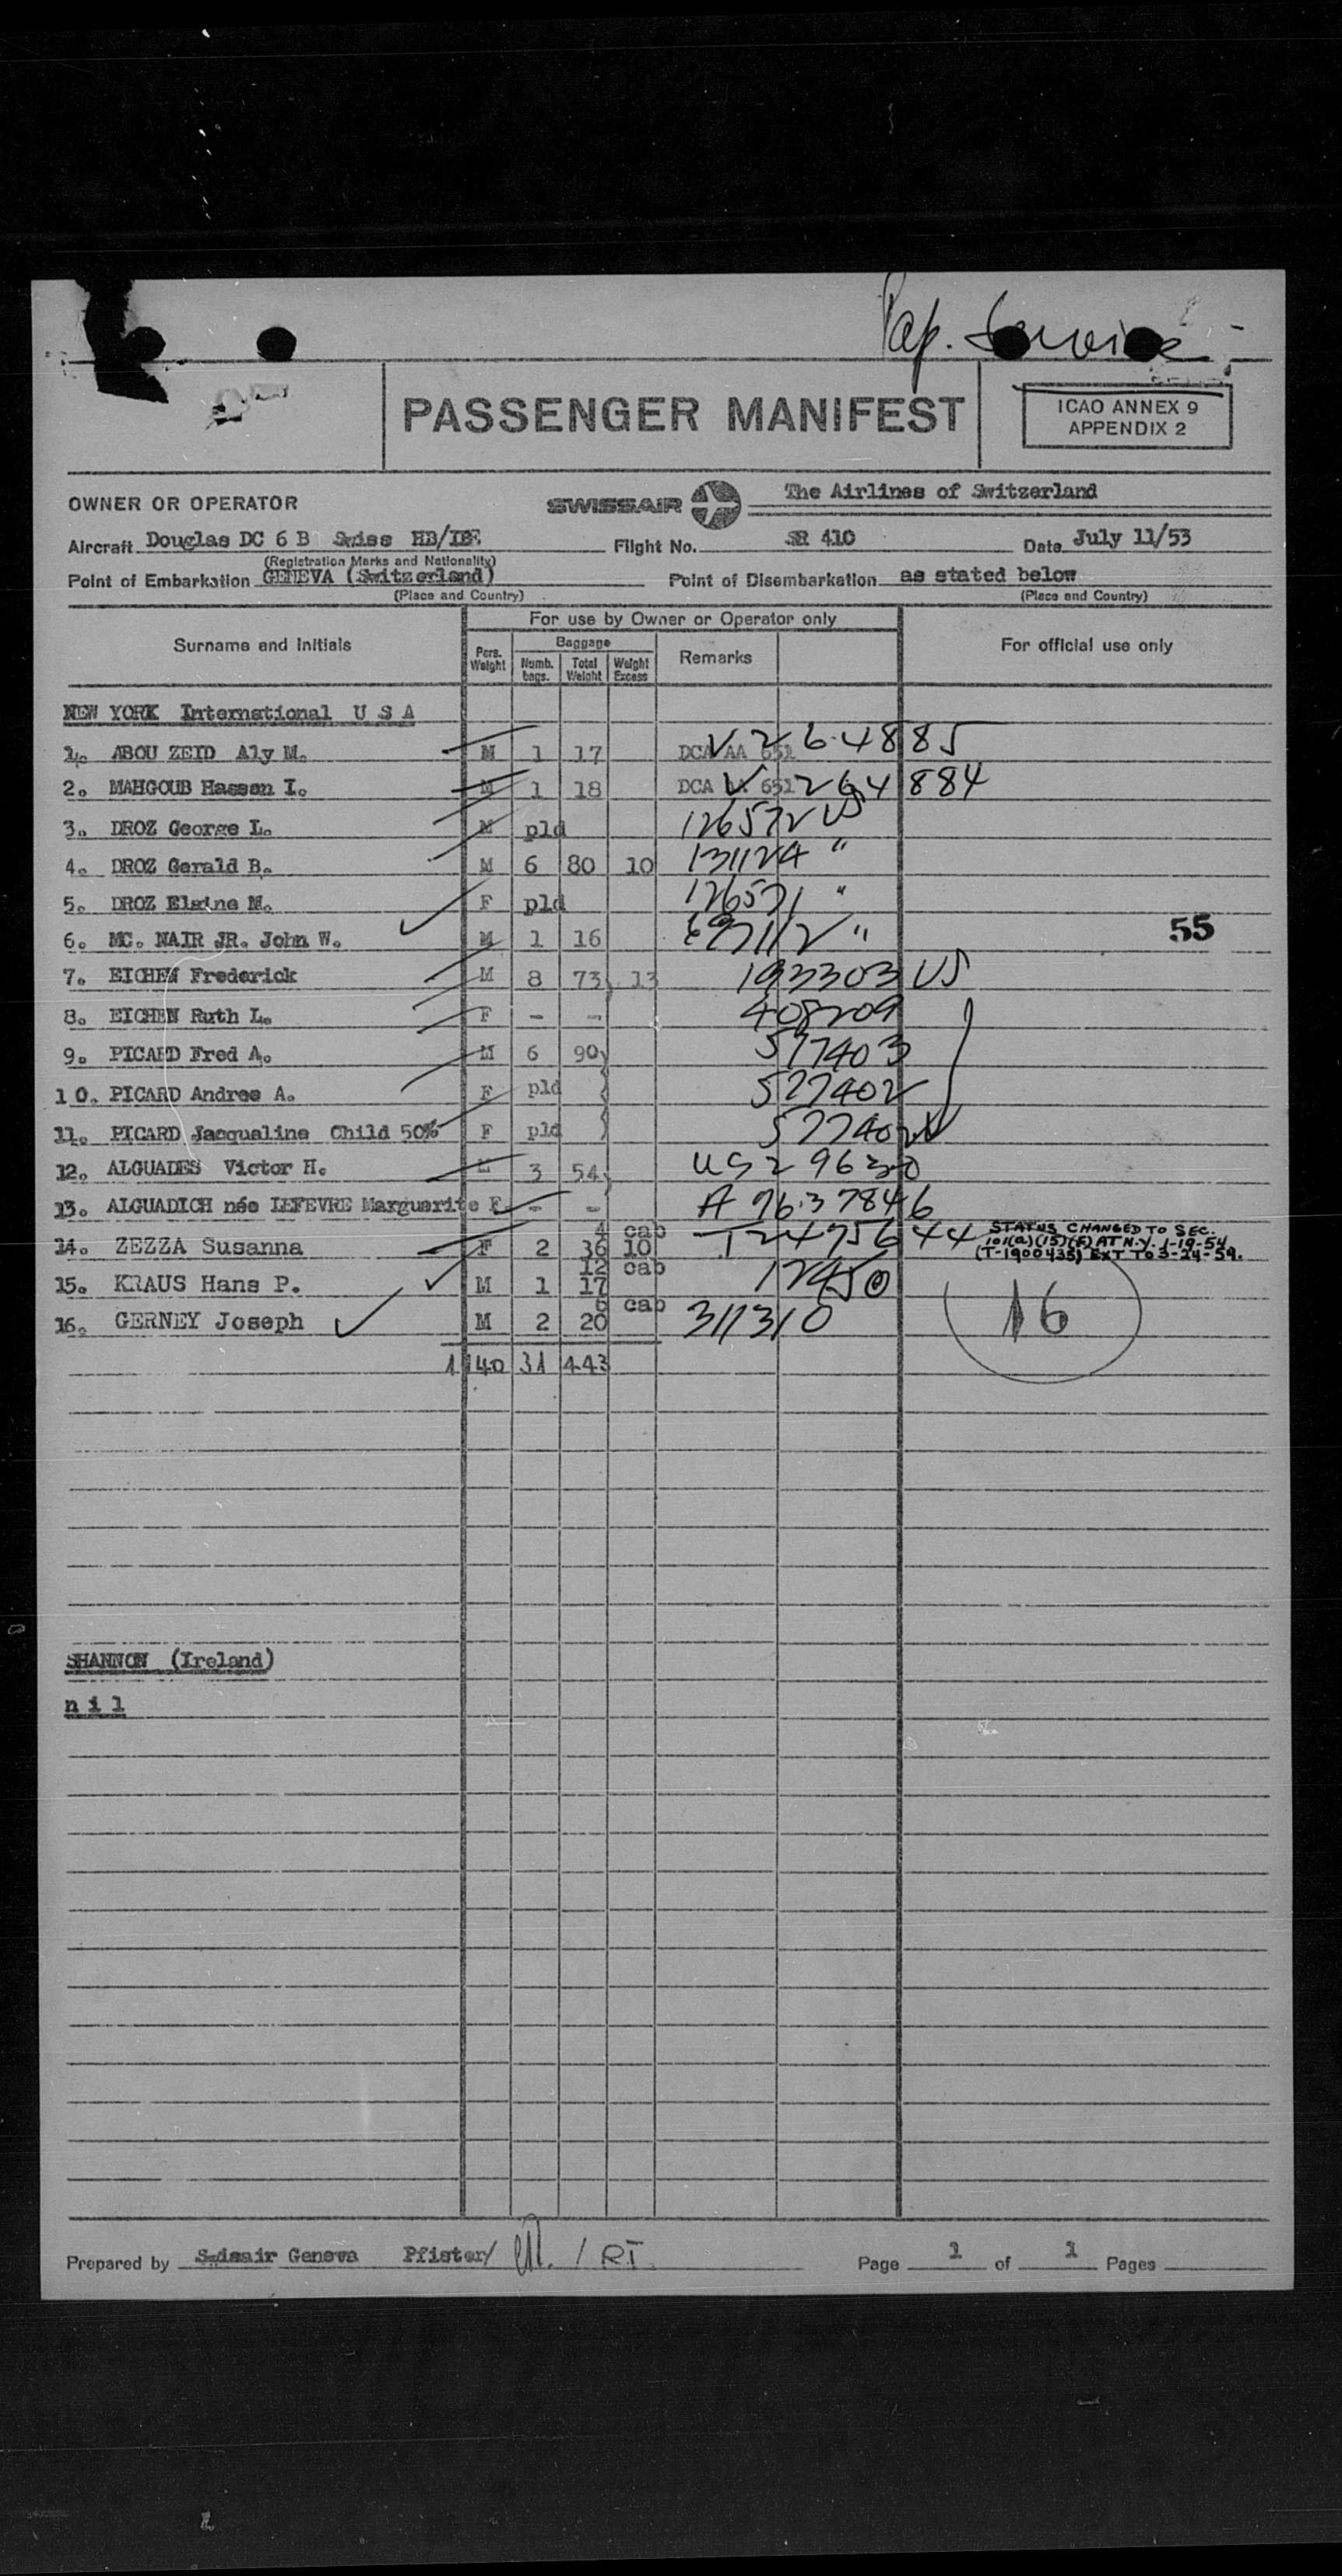 Pap. Service
PASSENGER MANIFEST
ICAO ANNEX 9
APPENDIX 2
OWNER OR OPERATOR SWISSAIR The Airlines of Switzerland
Aircraft Douglas DC 6 B Swiss HB/IBE Flight No. SR 410 Date July 11/53
(Registration Marks and Nationality)
Point of Embarkation GENEVA (Switzerland) Point of Disembarkation as stated below
(Place and Country) (Place and Country)
For use by Owner or Operator only
Surname and Initials Pers. Weight Baggage Numb. bags. Total Weight Weight Excess Remarks For official use only
NEW YORK International U S A
1. ABOU ZEID Aly M. M 1 17 DCA AA 651 V 264885
2. MAHGOUB Hassan I. M 1 18 DCA AA 651 V 264884
3. DROZ George L. M pld 126572 US
4. DROZ Gerald B. M 6 80 10 131124 "
5. DROZ Elaine M. F pld 126571 "
6. MC. NAIR JR. John W. M 1 16 "
55
7. EICHEN Frederick M 8 73 13 193303 US
8. EICHEN Ruth L. F - - 408209
9. PICARD Fred A. M 6 90 577403
10. PICARD Andree A. F pld 577402
11. PICARD Jacqualine Child 50% F pld 577402
12. ALGUADES Victor H. M 3 54 US 29630
13. ALGUADICH née LEFEVRE Marguerite F - - A 7637846
14. ZEZZA Susanna F 2 4 cab 36 10 T2475644 STATUS CHANGED TO SEC.
101(a)(15)(F) AT N.Y. 1-19-54
(T-1900435) EXT TO 3-24-59.
15. KRAUS Hans P. M 1 12 cab 17 12450
16. GERNEY Joseph M 2 6 cab 20 311310
16
1140 31 443
SHANNON (Ireland)
n i l
Prepared by Swissair Geneva Pfister/ / RI Page 1 of 1 Pages